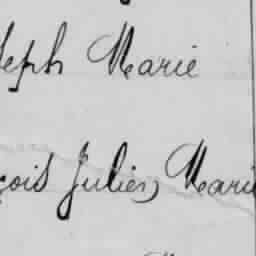 seph Marie
çois Julien, Marie